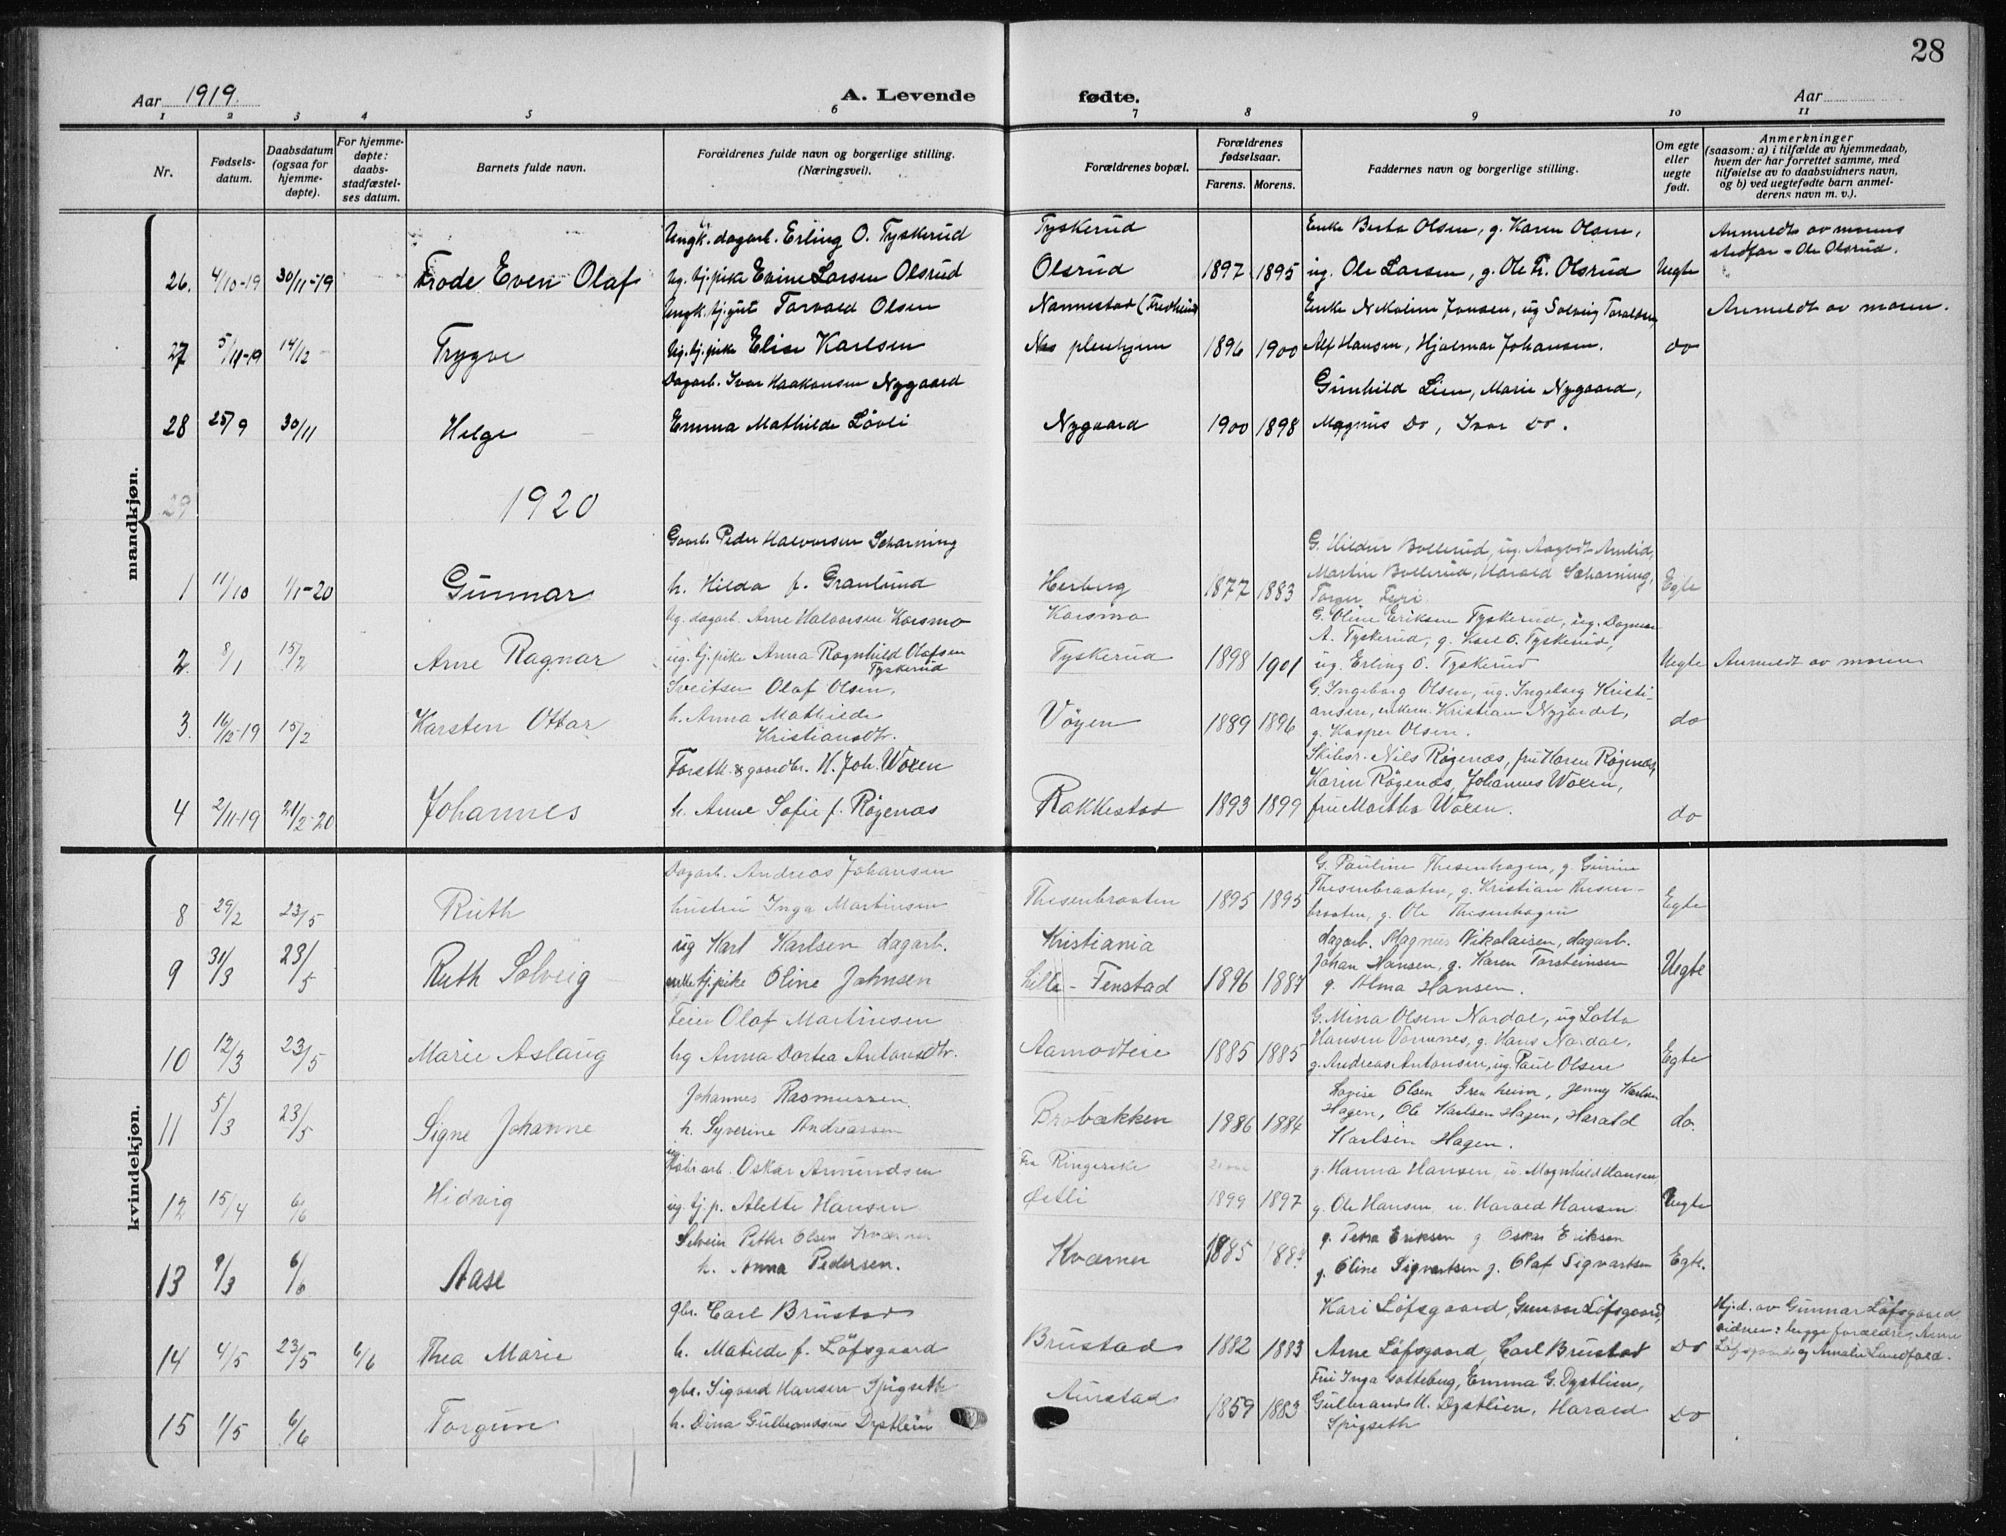 28
Aar 1919. A. Levende fødte. Aar
1 2 3 4 5 6 7 8 9 10 11
Nr.
Fødsels-
datum.
Daabsdatum
(ogsaa for
hjemme-
døpte).
For hjemme-
døpte:
daabs-
stadfæstel-
ses datum.
Barnets fulde navn.
Forældrenes fulde navn og borgerlige stilling.
(Næringsvei).
Forældrenes bopæl.
Forældrenes
fødselsaar.
Farens. Morens.
Faddernes navn og borgerlige stilling.
Om egte
eller
uegte
født.
Anmerkninger
(saasom: a) i tilfælde av hjemmedaab,
hvem der har forrettet samme, med
tilføielse av to daabsvidners navn,
og b) ved uegtefødte barn anmel-
derens navn m. v.).
mandkjøn.
Ungk. dagarb. Erling O. Tyskerud Tyskerud Enke Berta Olsen, g. Karen Olsen, Anmeldt av morens
stedfar - Ole Olsrud.
26. 4/10-19 30/11-19 Frode Even Olaf ug. tj. pike Evine Larsen Olsrud Olsrud 1897 1895 ug. Ole Larsen, g. Ole Tr. Olsrud Uegte
Ungk. tj. gut Torvald Olsen Nannestad Enke Nikoline Jonsen, ug Solveig Toralsen, Anmeldt av moren.
27 5/11-19 14/12 Trygve ug. tj. pike Elise Karlsen Nes pleiehjem 1896 1900 Alf Hansen, Hjalmar Johansen. do
Dagarb. Ivar Haakonsen Nygaard Gunhild Lien, Marie Nygaard,
28 25/9 30/11 Helge Emma Mathilde Løvli Nygaard 1900 1898 Magnus Do, Ivar Do.
29 1920
Gaarb. Peder Halvorsen Scharning G. Hildur Bollerud, ug. Aagodt Amlid,
Martin Bollerud, Harald Scharning,
1 11/10 1/1-20 Gunnar h. Hilda f. Granlund Herberg 1877 1883 Torger Juri. Egte
Ug. dagarb. Arne Halvorsen Korsmo Korsmo G. Oline Eriksen Tyskerud, ug. Dagmar
A. Tyskerud, g. Karl O. Tyskerud,
2. 8/1 15/2 Arne Ragnar ug. tj. pike Anna Ragnhild Olafsen Tyskerud 1898 1901 ug. Erling O. Tyskerud Uegte Anmeldt av moren
Tyskerud
Sveitser Olaf Olsen, G. Ingeborg Olsen, ug. Ingeborg Kristi-
3. 16/12-19 15/2 Karsten Ottar h. Anna Mathilde Vøyen 1889 1896 ansen, enkem. Kristian Nygardet, do
Kristiansdtr. g. Kasper Olsen.
Forstk. & gaardbr. H. Joh. Woxen Nils Røgenæs, fru Karen Røgenæs,
Karin Røgenæs, Johannes Woxen,
4 2/11-19 21/2-20 Johannes h. Anne Sofie f. Røgenæs Rakkestad 1893 1899 fru Martha Woxen. do
kvindekjøn.
Dagarb. Andreas Johansen G. Pauline Thesenhagen, g. Gurine
Thesenbraaten, g. Kristian Thesen-
8 29/2 23/5 Ruth hustru Inga Martinsen Thesenbraaten 1895 1895 braaten, g. Ole Thesenhagen Egte
ug Karl Karlsen dagarb. Kristiania dagarb. Magnus Nikolaisen, dagarb.
Johan Hansen, g. Karen Torsteinsen
9 31/3 23/5 Ruth Solveig enke tj. pike Oline Johnsen Lille - Fenstad 1896 1887 g. Alma Hansen. Uegte
Feier Olaf Martinsen G. Mina Olsen Nordal, ug Lotta
Hansen Vormnes, g. Hans Nordal,
10 12/3 23/5 Marie Aslaug hg Anna Dortea Antonsdtr. Aamodteie 1885 1885 g. Andreas Antonsen, ug. Paul Olsen Egte
Johannes Rasmussen Lovise Olsen Grenheim, Jenny Karlsen
Hagen, Ole Karlsen Hagen, Harald
11 5/3 23/5 Signe Johanne h. Syverine Andreassen Brobækken 1886 1886 Karlsen Hagen. do.
ug. Oskar Amundsen Fra Ringerike g. Hanna Hansen, u. Magnhild Hansen
12 15/4 6/6 Hidvig ug. tj. p. Alette Hansen Østli 1899 1897 g. Ole Hansen u. Harald Hansen Uegte
Petter Olsen Kværner g. Petra Eriksen g Oskar Eriksen
13 9/3 6/6 Aase h. Anna Pedersen. Kværner 1885 g. Oline Sigvartsen g. Olaf Sigvartsen Egte.
gbr. Carl Brustad Kari Løfsgaard, Gunvor Løfsgaard, Hj.d. av Gunnar Løfsgaard
vidner: begge forældre, Arne
14 4/5 23/5 6/6 Thea Marie h. Matilde f. Løfsgaard Brustad 1882 1883 Arne Løfsgaard, Carl Brustad Do Løfsgaard og Amalie Lundfald.
gbr. Sigvard Hansen Spigseth Fru Inga Gotteberg, Emma G. Dystlien,
15 1/5 6/6 Torgun h. Dina Gulbrandsen Dystlien Aurstad 1859 1883 Gulbrand H. Dystlien, Harald Do
Spigseth